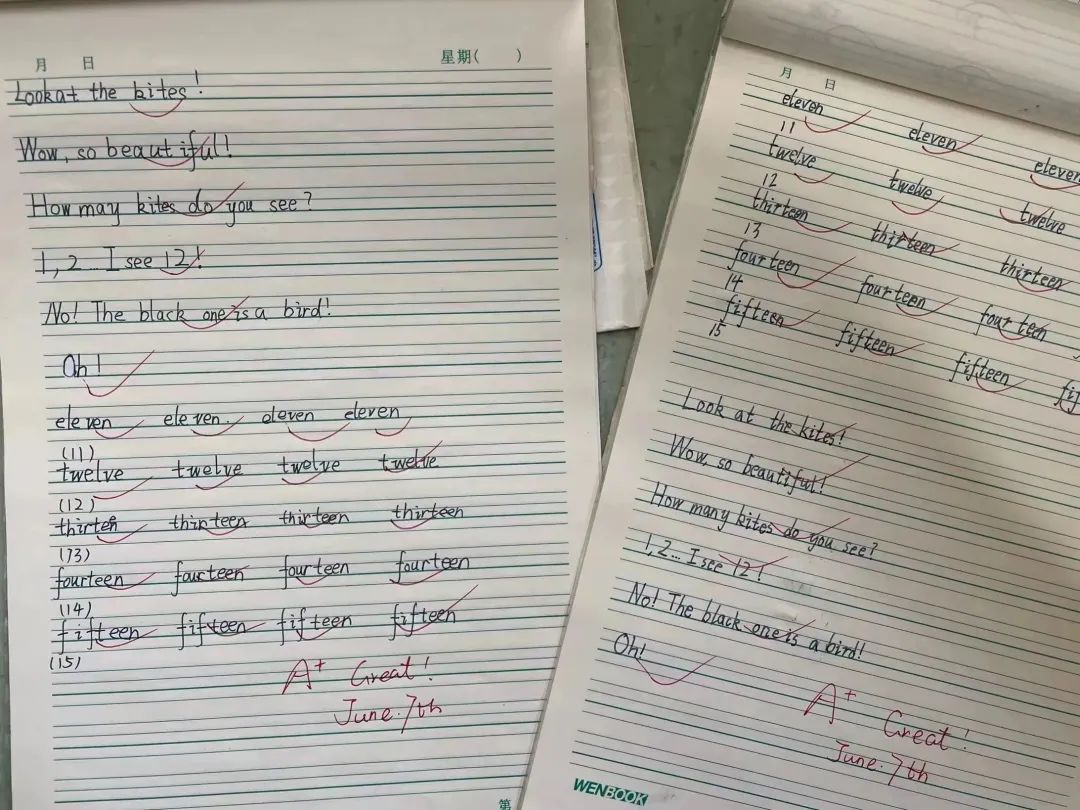 月 日 星期( )
Look at the kites!
Wow, so beautiful!
How may kites do you see?
1, 2... I see 12!
No! The black one is a bird!
Oh!
eleven eleven. eleven eleven
(11)
twelve twelve twelve twelve
(12)
thirten thirteen thirteen thirteen
(13)
fourteen fourteen fourteen fourteen
(14)
fifteen fifteen fifteen fifteen
(15)
A+ Great!
June. 7th
第
月 日
eleven eleven eleven
11
twelve twelve twelve
12
thirteen thirteen thirteen
13
fourteen fourteen fourteen
14
fifteen fifteen fifteen
15
Look at the kites!
Wow, so beautiful!
How many kites do you see?
1, 2... I see 12!
No! The black one is a bird!
Oh!
A+ Great!
June. 7th
WENBOOK